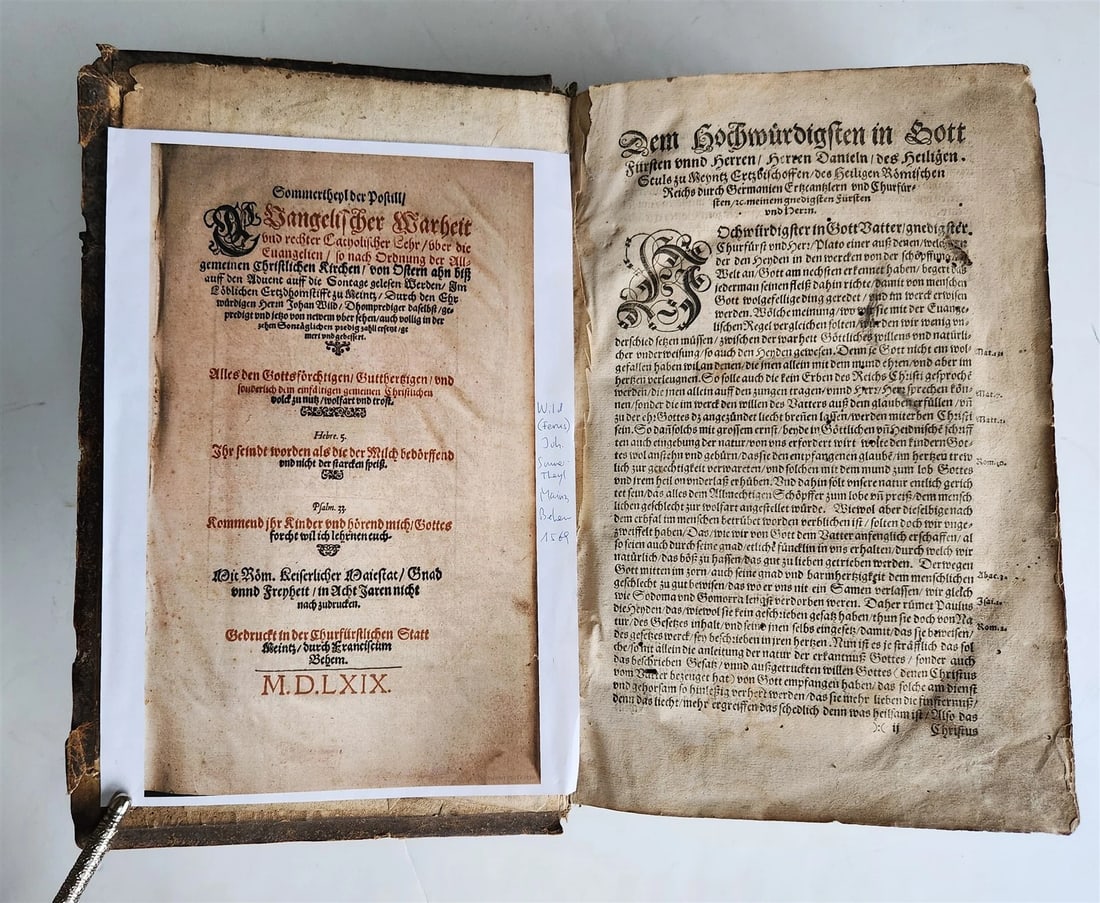 Sommertheyl der Postill/
EVangelischer Warheit
vnd rechter Catholischer Lehr/ vber die
Euangelien/ so nach Ordnung der All-
gemeinen Christlichen Kirchen/ von Ostern ahn biß
auff den Aduent auff die Sontage gelesen Werden/ Im
Löblichen Ertzdhomstifft zu Meintz/ Durch den Ehr
würdigen Herrn Johan Wild/ Dhomprediger daselbst/ ge-
predigt vnd jetzo von newem vber sehen/ auch vollig in der
zehen Sontäglichen predig zahl ersetzt/ ge
mert vnd gebessert.
Alles den Gottsförchtigen/ Gutthertzigen/ vnd
sonderlich dem einfältigen gemeinen Christlichen
volck zu nutz/ wolfart vnd trost.
Hebre. 5.
Ihr seindt worden als die der Milch bedörffend
vnd nicht der starcken speiß.
Psalm. 33.
Kommend jhr Kinder vnd hörend mich/ Gottes
forcht wil ich lehrnen euch.
Mit Röm. Keiserlicher Maiestat/ Gnad
vnnd Freyheit/ in Acht Jaren nicht
nach zudrucken.
Gedruckt in der Churfürstlichen Statt
Meintz/ durch Franciscum
Behem.
M.D.LXIX.
Wild
(Ferus)
Joh.
Somer
Theyl
Mainz
Behem
1569
Dem Hochwürdigsten in Gott
Fürsten vnnd Herren/ Herren Danieln/ des Heiligen
Stuls zu Meyntz Ertzbischoffen/ des Heiligen Römischen
Reichs durch Germanien Ertzcantzlern vnd Churfür-
sten/ rc. meinem gnedigsten Fürsten
vnd Herrn.
HOchwürdigster in Gott Vatter/ gnedigster
Churfürst vnd Herr/ Plato einer auß denen/
der den Heyden in den wercken von der schöpffung
Welt an/ Gott am nechsten erkennet haben/ begert das
jederman seinen fleiß dahin richte/ damit von menschen
Gott wolgefellige ding geredet/ vnd im werck erwisen
werden. Wölche meinung/ wo wir sie mit der Euange-
lischen Regel vergleichen solten/ würden wir wenig vn-
derschied setzen müssen/ zwischen der warheit Göttliches willens vnd natürli-
cher vnderweisung/ so auch den Heyden gewesen. Denn je Gott nicht ein wol-
gefallen haben wil an denen/ die jnen allein mit dem mund ehren/ vnd aber im
hertzen verleugnen. So solle auch die kein Erben des Reichs Christi gesproche
werden/ die jnen allein auff den zungen tragen/ vnnd Herr/ Herr sprechen kön-
nen/ sonder die im werck den willen des Vatters auß dem glauben erfüllen/ vn
zu der ehr Gottes dz angezündet liecht breñen lassen/ werden miterben Christi
sein. So dañ solchs mit grossem ernst/ beyde in Göttlichen vñ Heidnische schrift
ten auch eingebung der natur/ von vns erfordert wirt wölte den kindern Got-
tes wol anstehn vnd gebürn/ das sie den empfangenen glaubē/ im hertzen trew
lich zur gerechtigkeit verwareten/ vnd solchen mit dem mund zum lob Gottes
vnd jrem heil on vnderlaß erhüben. Vnd dahin sölt vnsere natur entlich gerich
tet sein/ das alles dem Allmechtigen Schöpffer zum lobe vñ preiß/ dem mensch
lichen geschlecht zur wolfart angestellet würde. Wiewol aber dieselbige nach
dem erbfal im menschen betrübet worden verblichen ist/ solten doch wir vnge-
zweiffelt haben/ Das/ wie wir von Gott dem Vatter anfenglich erschaffen/ al
so seien auch durch seine gnad/ etliche füncklin in vns erhalten/ durch welch wir
natürlich/ das böß zu hassen/ das gut zu lieben getrieben werden. Derwegen
Gott mitten im zorn/ auch seine gnad vnd barmhertzigkeit dem menschlichen
geschlecht zu gut bewisen/ das wo er vns nit ein Samen verlassen/ wir gleich
wie Sodoma vnd Gomorra lengst verdorben weren. Daher rümet Paulus
die Heyden/ das/ wiewol sie kein geschrieben gesatz haben/ thun sie doch von Na
tur/ des Gesetzes inhalt/ vnd seine jnen selbs ein gesetz/ damit/ das sie beweisen/
des gesetzes werck/ sey beschrieben in jren hertzen. Nun ist es je sträfflich das sol
che/ so nit allein die anleitung der natur der erkantnuß Gottes/ sonder auch
das beschrieben Gesatz/ vnnd außgetruckten willen Gottes (denen Christus
vom Vatter bezeuget hat) von Gott empfangen haben/ das solche am dienst
vnd gehorsam so hinlessig verhert werden/ das sie mehr lieben die finsternuß/
denn das liecht/ mehr ergreiffen das schedlich denn was heilsam ist/ Also das
):( ij Christus
Mat. 15.
Mat. 7.
Matt. 5.
Rom. 10.
Abac. 3.
Isai. 1.
Rom. 2.